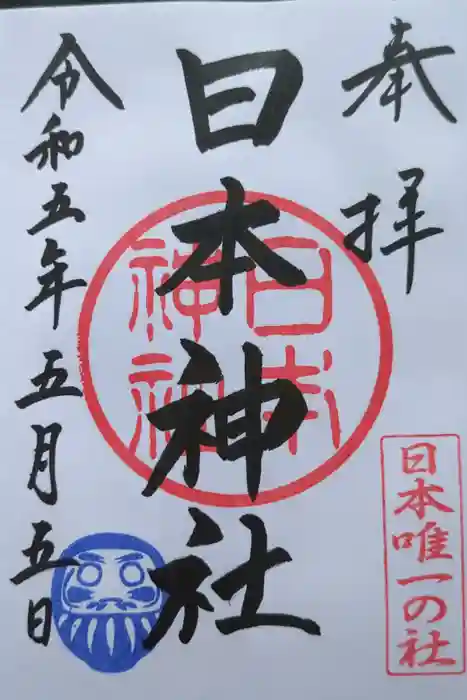 奉拝
日本神社
日本神社
日本唯一の社
令和五年五月五日